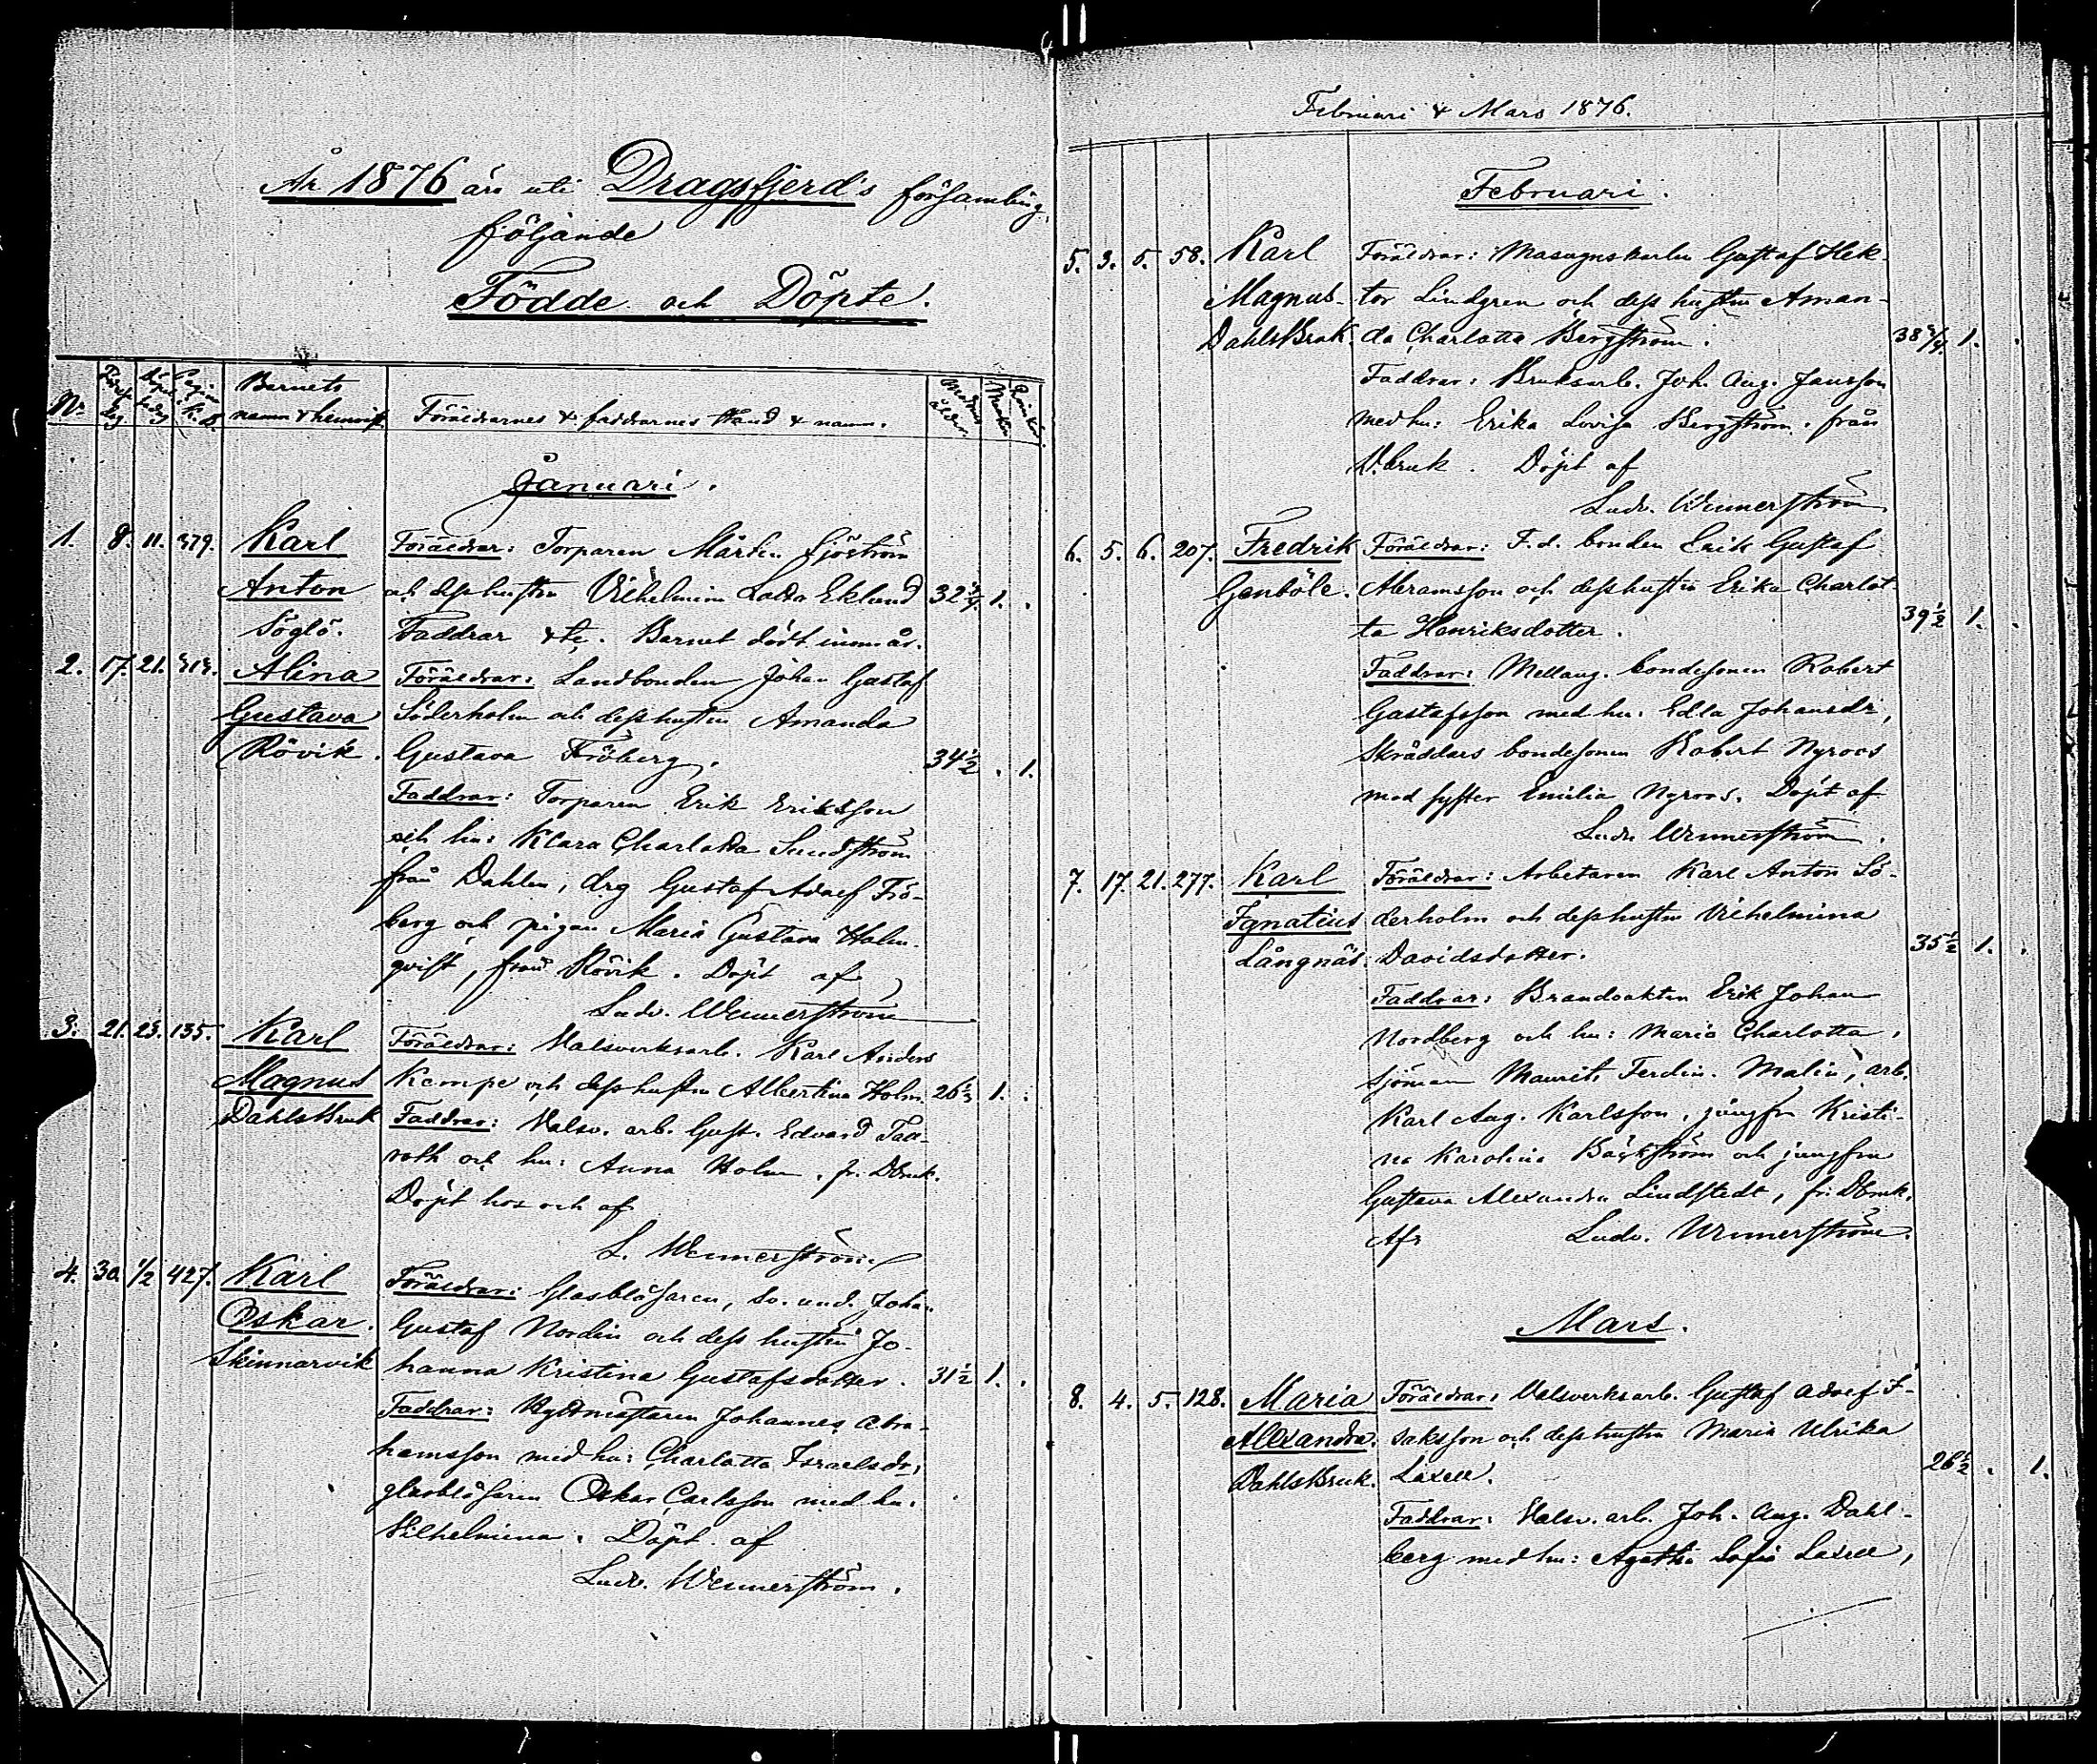 År 1876 äro uti Dragsfjerd's församling
följande
Födde och Döpte.
No Född. dag Döpt. dag Pagina i K.B. Barnets namn & hemvist. Föräldrarnes & faddrarnes stånd & namn. Modrens ålder. Mankön. Qvinkön.
Januari.
1. 8. 11. 379. Karl Föräldrar: Torparen Mårten Sjöström
Anton och dess hustru Vilhelmina Lovisa Eklund 32 3/4 1.
Söglö. Faddrar &c. Barnet dödt inom år.
2. 17. 21. 313. Alina Föräldrar: Landbonden Johan Gustaf
Gustava Söderholm och dess hustru Amanda
Rövik. Gustava Fröberg. 34 1/2 . 1.
Faddrar: Torparen Erik Eriksson
och hu: Klara Charlotta Sundström
från Dahlen, drg Gustaf Adolf Frö-
berg och pigan Maria Gustava Holm-
qvist, från Rövik. Döpt af
Ludv. Wennerström
3. 21. 23. 135. Karl Föräldrar: Valsverksarb. Karl Anders
Magnus Kempe och dess hustru Albertina Holm. 26 1/2 1.
DahlsBruk Faddrar: Valsv. arb. Gust. Edvard Tall-
roth och hu: Anna Holm, fr. DBruk.
Döpt hos och af
L. Wennerström
4. 30. 1/2 427. Karl Föräldrar: Glasblåsaren, sv. und. Johan
Oskar. Gustaf Nordin och dess hustru Jo-
Skinnarvik hanna Kristina Gustafsdotter. 31 1/2 1.
Faddrar: Hyttmästaren Johannes Abra-
hamsson med hu: Charlotta Israelsdr,
glasblåsaren Oskar Carlsson med hu.
Vilhelmina. Döpt af
Ludv. Wennerström.
Februari & Mars 1876.
Februari.
5. 3. 5. 58. Karl Föräldrar: Masugnskarlen Gustaf Hek-
Magnus- tor Lindgren och dess hustru Aman-
DahlsBruk. da Charlotta Bergström. 38 3/4. 1.
Faddrar: Bruksarb. Joh. Aug. Jansson
med hu: Erika Lovisa Bergström, från
D.bruk. Döpt af
Ludv. Wennerström
6. 5. 6. 207. Fredrik Föräldrar: F.d. bonden Erik Gustaf
Genböle. Abramsson och dess hustru Erika Charlot-
ta Henriksdotter. 39 1/2 1.
Faddrar: Mellang. bondesonen Robert
Gustafsson med hu: Edla Johansdr,
Skräddars bondesonen Robert Nyroos
med syster Emilia Nyroos. Döpt af
Ludv. Wennerström.
7. 17. 21. 277. Karl Föräldrar: Arbetaren Karl Anton Sö-
Ignatius derholm och dess hustru Vilhelmina
Långnäs. Davidsdotter. 35 1/2 1.
Faddrar: Brandvakten Erik Johan
Nordberg och hu: Maria Charlotta,
sjöman Maurits Ferdin. Malin, arb.
Karl Aug. Karlsson, jungfru Kristi-
na Karolina Bäckström och jungfru
Gustava Alexandra Lindstedt, fr. DBruk.
Af: Ludv. Wennerström.
Mars.
8. 4. 5. 128. Maria Föräldrar: Valsverksarb. Gustaf Adolf I-
Alexandra. saksson och dess hustru Maria Ulrika
DahlsBruk. Laxell. 26 1/2 . 1.
Faddrar: Valsv. arb. Joh. Aug. Dahl-
berg med hu: Agatha Sofia Laxell,